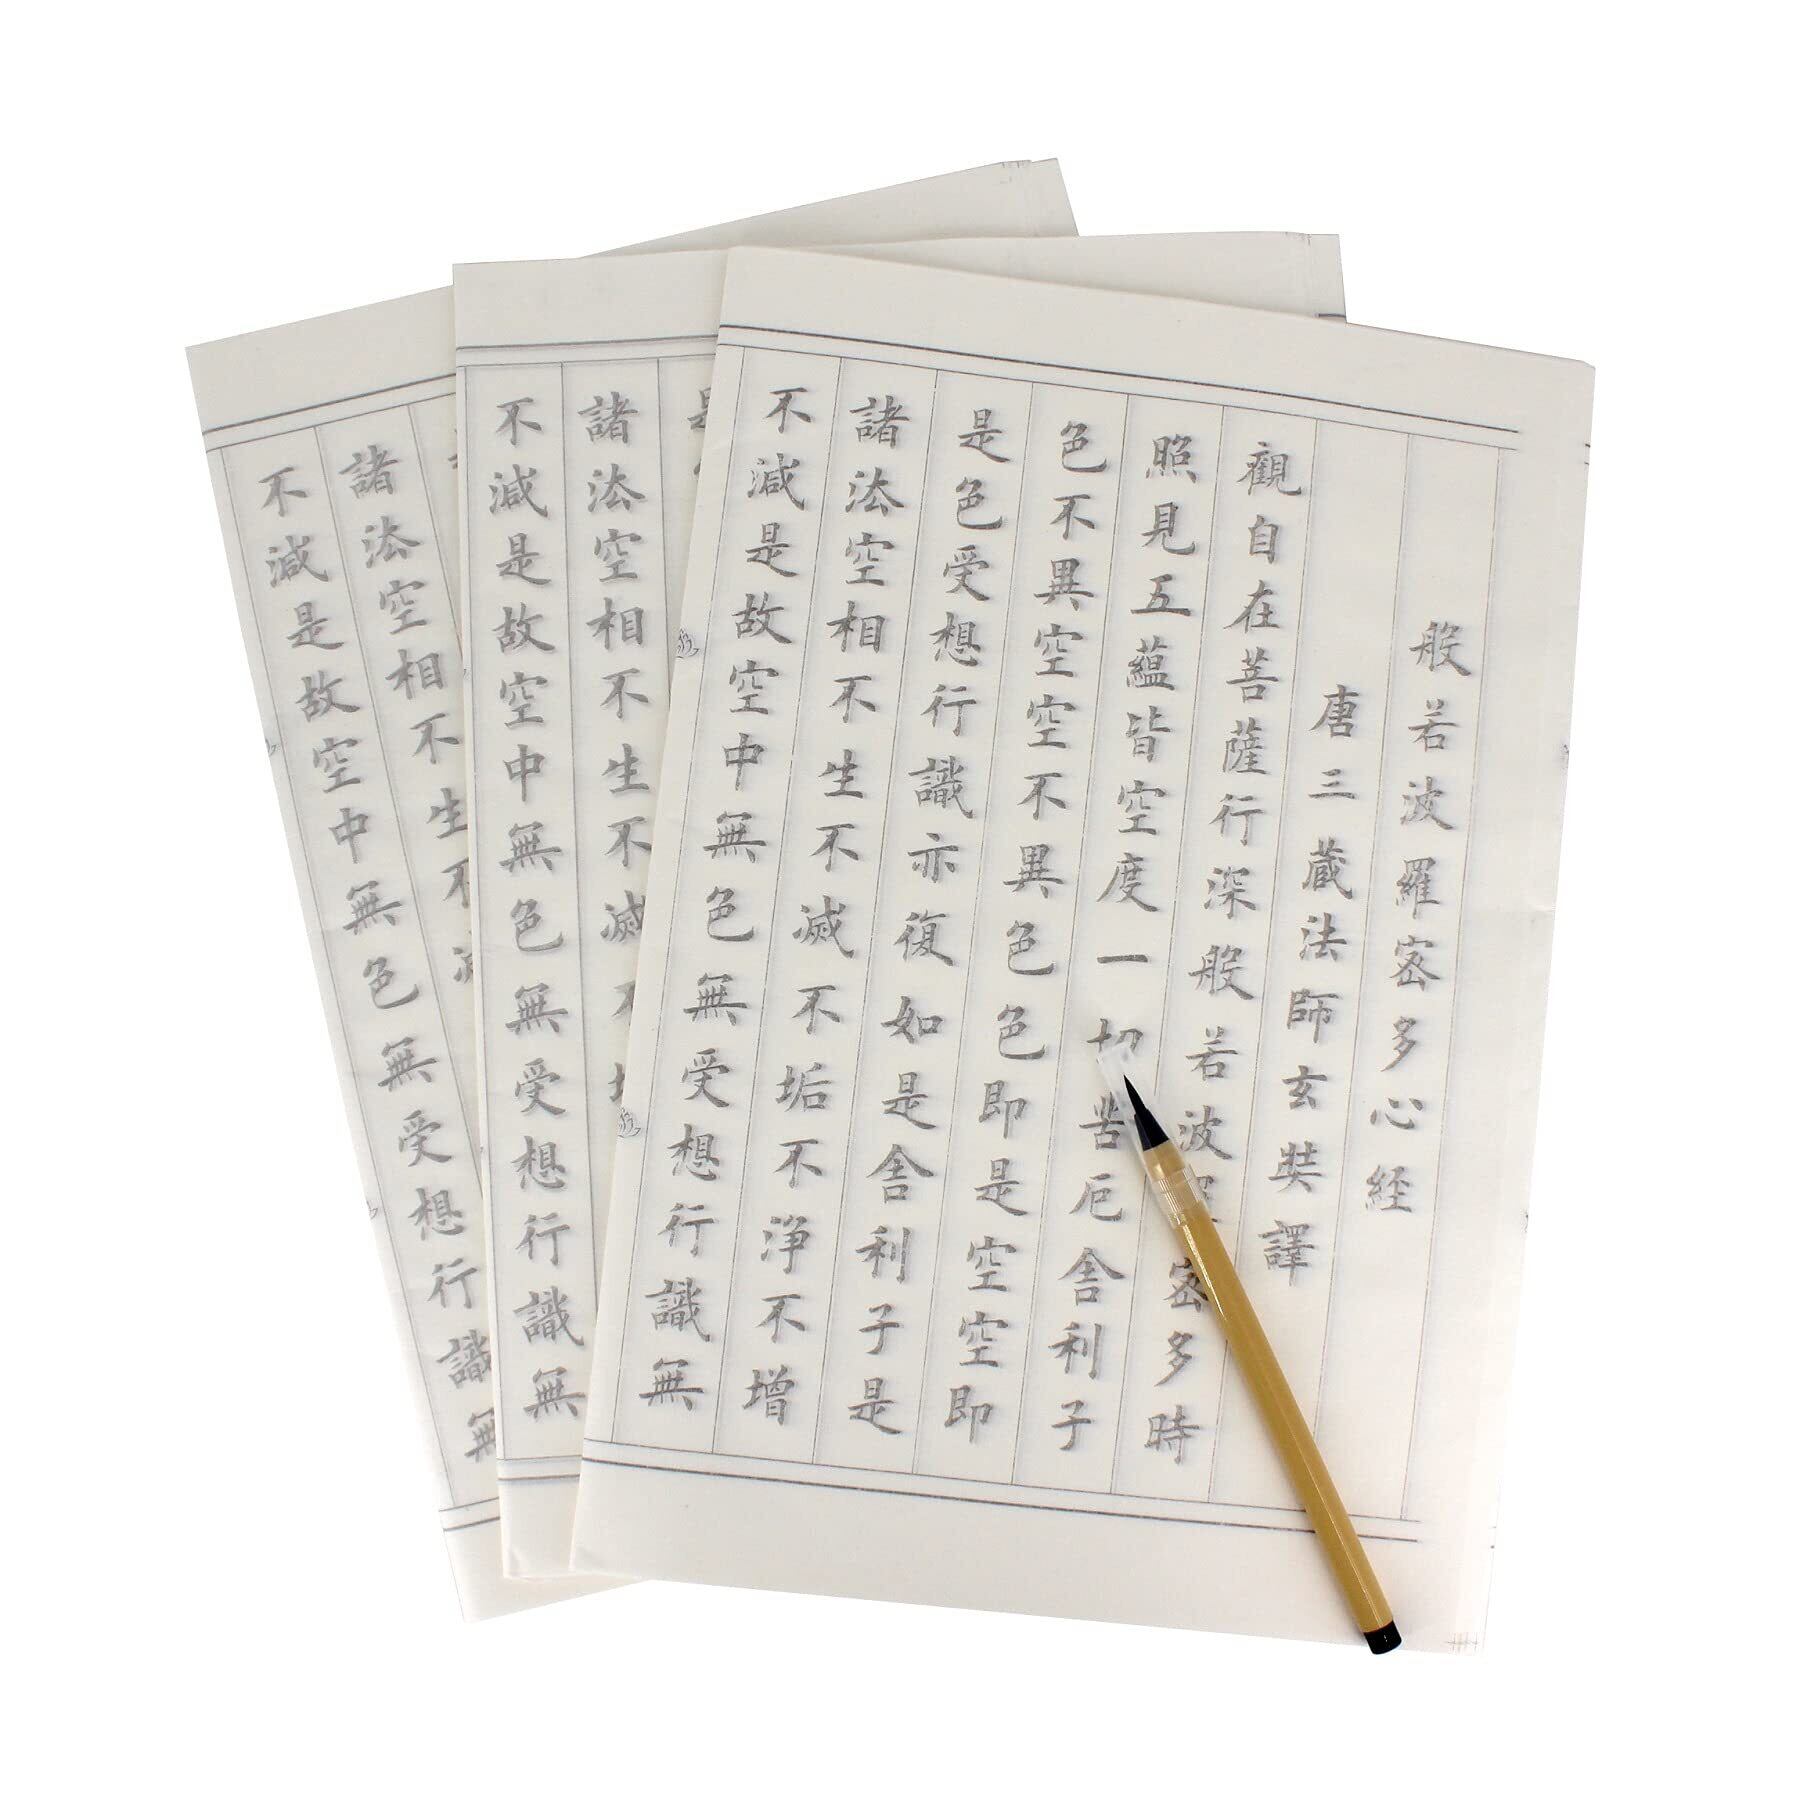 般若波羅密多心経
唐三蔵法師玄奘譯
觀自在菩薩行深般若波羅密多時
照見五蘊皆空度一切苦厄舎利子
色不異空空不異色色即是空空即
是色受想行識亦復如是舎利子是
諸法空相不生不滅不垢不浄不増
不減是故空中無色無受想行識無
諸法空相不生不滅不
不減是故空中無色無受想行識無
諸法空相不生不
不減是故空中無色無受想行識無